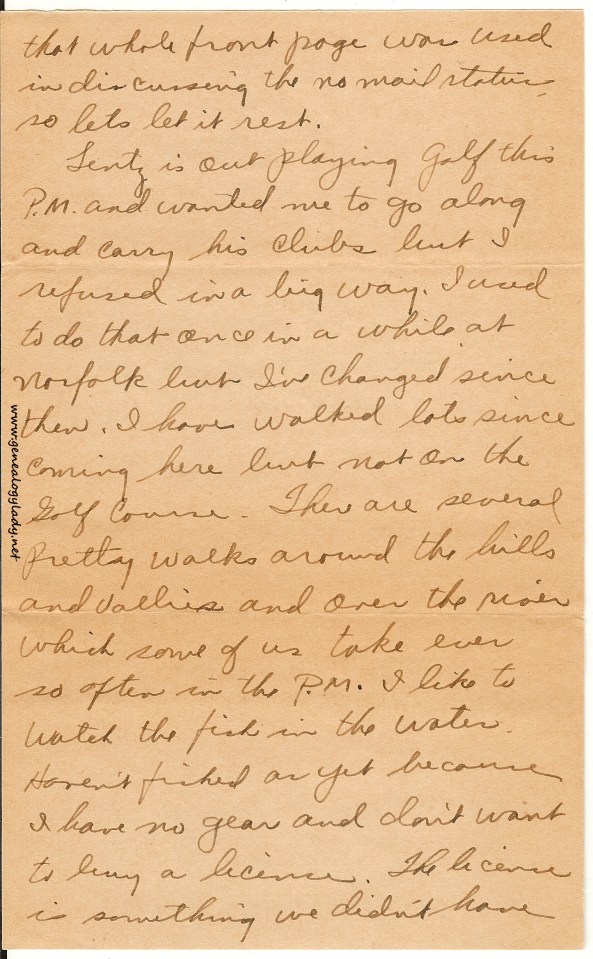 that whole front page was used
in discussing the no mail status
so lets let it rest.
Lentz is out playing Golf this
P.M. and wanted me to go along
and carry his clubs but I
refused in a big way. I used
to do that once in a while at
Norfolk but I've changed since
then. I have walked lots since
coming here but not on the
Golf Course. There are several
pretty walks around the hills
and vallies and over the river
which some of us take ever
so often in the P.M. I like to
watch the fish in the water.
Haven't fished as yet because
I have no gear and don't want
to buy a license. The license
is something we didn't have
www.genealogylady.net